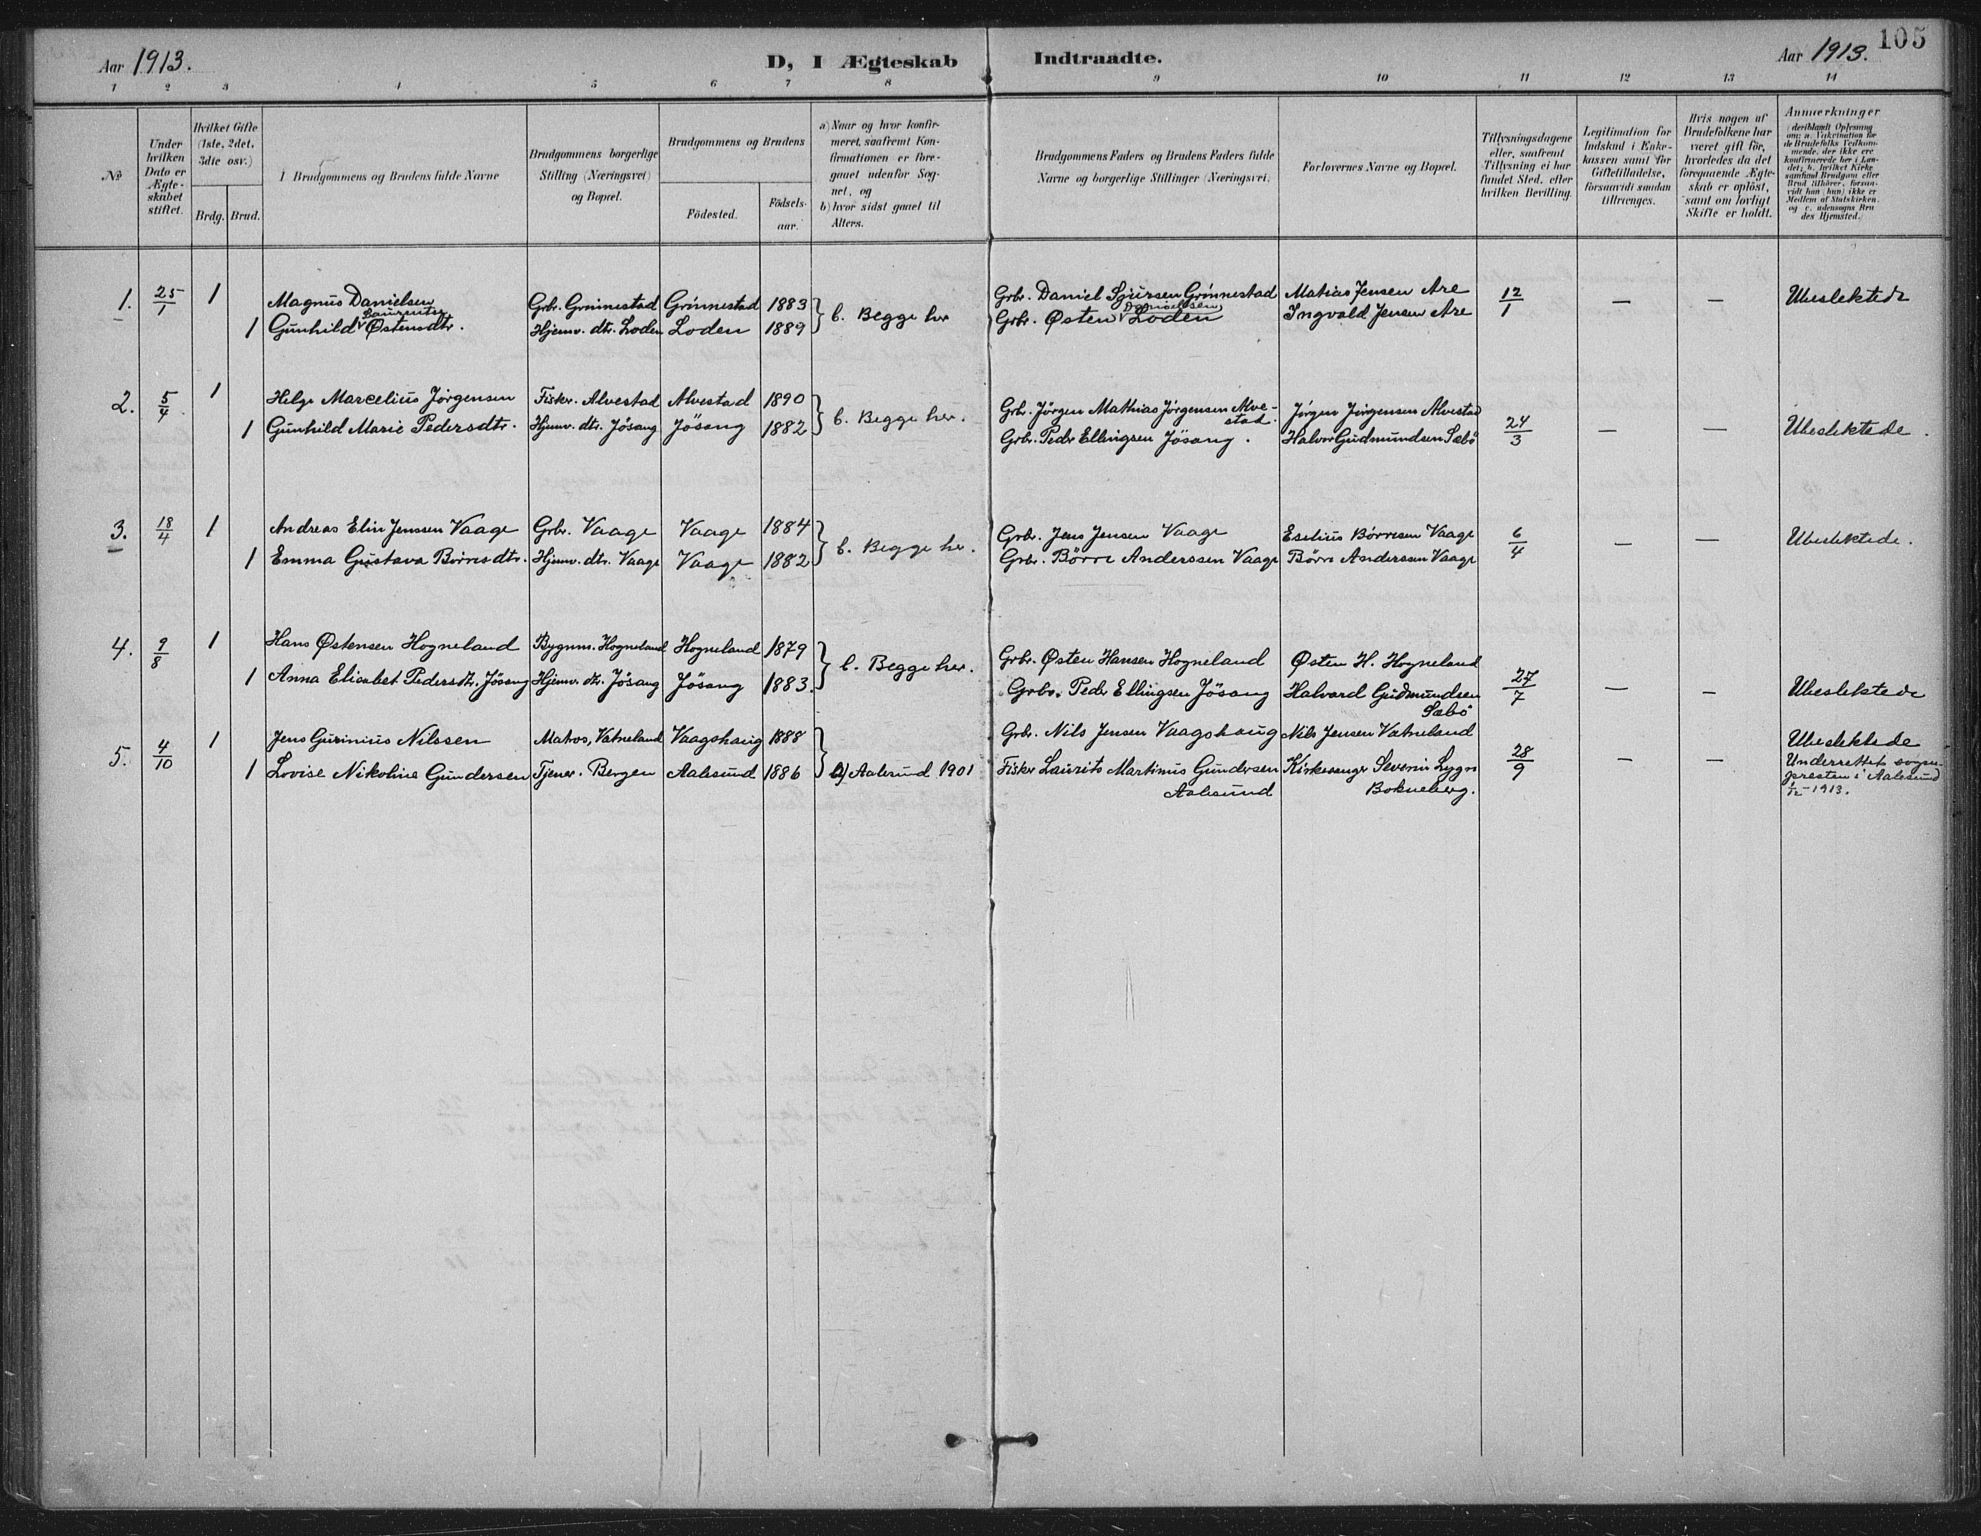 105
Aar 1913.
D, I Ægteskab Indtraadte.
Aar 1913.
1 2 3 4 5 6 7 8 9 10 11 12 13 14
№
Under hvilken Dato er Ægteskabet stiftet.
Hvilket Gifte (1ste, 2det, 3die osv.)
Brdg. Brud.
Brudgommens og Brudens fulde Navne
Brudgommens borgerlige Stilling (Næringsvei) og Bopæl.
Brudgommens og Brudens
Födested.
Födselsaar.
a) Naar og hvor konfirmeret, saafremt Konfirmationen er foregaaet udenfor Sognet, og
b) hvor sidst gaaet til Alters.
Brudgommens Faders og Brudens Faders fulde Navne og borgerlige Stillinger (Næringsvei.)
Forlovernes Navne og Bopæl.
Tillysningsdagene eller, saafremt Tillysning ei har fundet Sted, efter hvilken Bevilling.
Legitimation for Indskud i Enkekassen samt for Giftetilladelse, forsaavidt saadan tiltrænges.
Hvis nogen af Brudefolkene har været gift för, hvorledes da det foregaaende Ægteskab er oplöst, samt om lovligt Skifte er holdt.
Anmærkninger
1. 25/1 1 Magnus Danielsen Grbr. Grönnestad Grönnestad 1883 b. Begge her Grbr. Daniel Sjursen Grönnestad Matias Jensen Are 12/1 — — Ubeslektede
1 Gunhild Laurentse Østensdtr. Hjemv. dtr. Loden Loden 1889 Grbr. Østen Danielsen Loden Ingvald Jensen Are
2. 5/4 1 Helge Marcelius Jörgensen Fisker. Alvestad Alvestad 1890 b. Begge her. Grbr. Jörgen Mathias Jörgensen Alvestad. Jörgen Jörgensen Alvestad 24/3 — — Ubeslektede.
1 Gunhild Marie Pedersdtr. Hjemv. dtr. Jösang Jösang 1882 Grbr. Peder Ellingsen Jösang. Halvor Gudmundsen Sæbö
3. 18/4 1 Andreas Elin Jenssen Vaage Grbr. Vaage Vaage 1884 b. Begge her. Grbr. Jens Jensen Vaage Eselius Børresen Vaage 6/4 — — Ubeslektede.
1 Emma Gustava Börresdtr. Hjemv. dtr. Vaage Vaage 1882 Grbr. Börre Anderssen Vaage Börre Anderssen Vaage
4. 9/8 1 Hans Østensen Hogneland Bygnm. Hogneland Hogneland 1879 b. Begge her. Grbr. Østen Hansen Hogneland Østen H. Hogneland 27/7 — — Ubeslektede
1 Anna Elisabet Pedersdtr. Jösang Hjemv. dtr. Jösang Jösang 1883. Grbr. Peder Ellingsen Jösang Halvard Gudmundsen Sæbö
5. 4/10 1 Jens Gurinius Nilssen Matros, Vatneland Vaagshaug 1888 Grbr. Nils Jensen Vaagshaug Nils Jensen Vatneland 28/9 — — Ubeslektede
1 Lovise Nikoline Gundersen Tjener. Bergen Aalesund 1886 a) Aalesund 1901 Fisker Laurits Martinus Gundersen Aalesund Kirkesanger Severin Lygre Bokneberg. Underrettet sognepresten i Aalesund 1/12 - 1913.